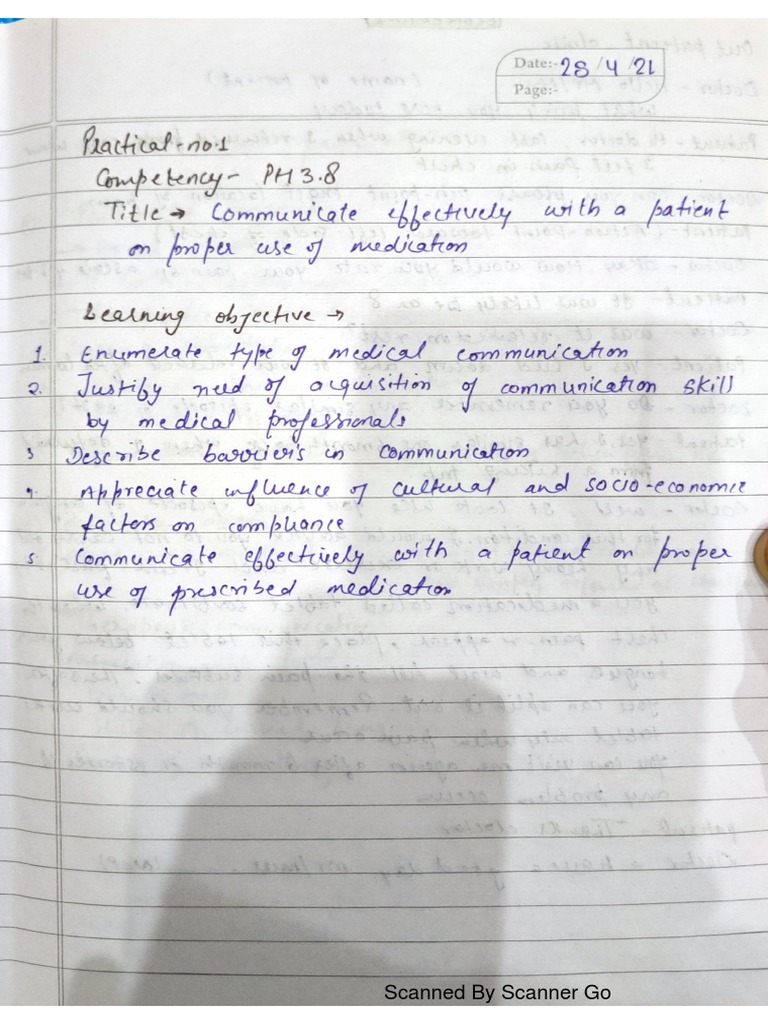 Date:- 28/4/21
Page:-
Practical - no.1
Competency - PH 3.8
Title → Communicate effectively with a patient
on proper use of medication
Learning objective →
1. Enumerate type of medical communication
2. Justify need of acquisition of communication skill
by medical professionals
3 Describe barriers in communication
4. Appreciate influence of cultural and socio-economic
factors on compliance
5. Communicate effectively with a patient on proper
use of prescribed medication
Scanned By Scanner Go